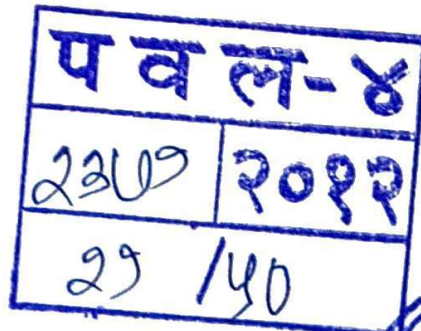 प व ल - ४
२३७१ २०१२
२१ /५०